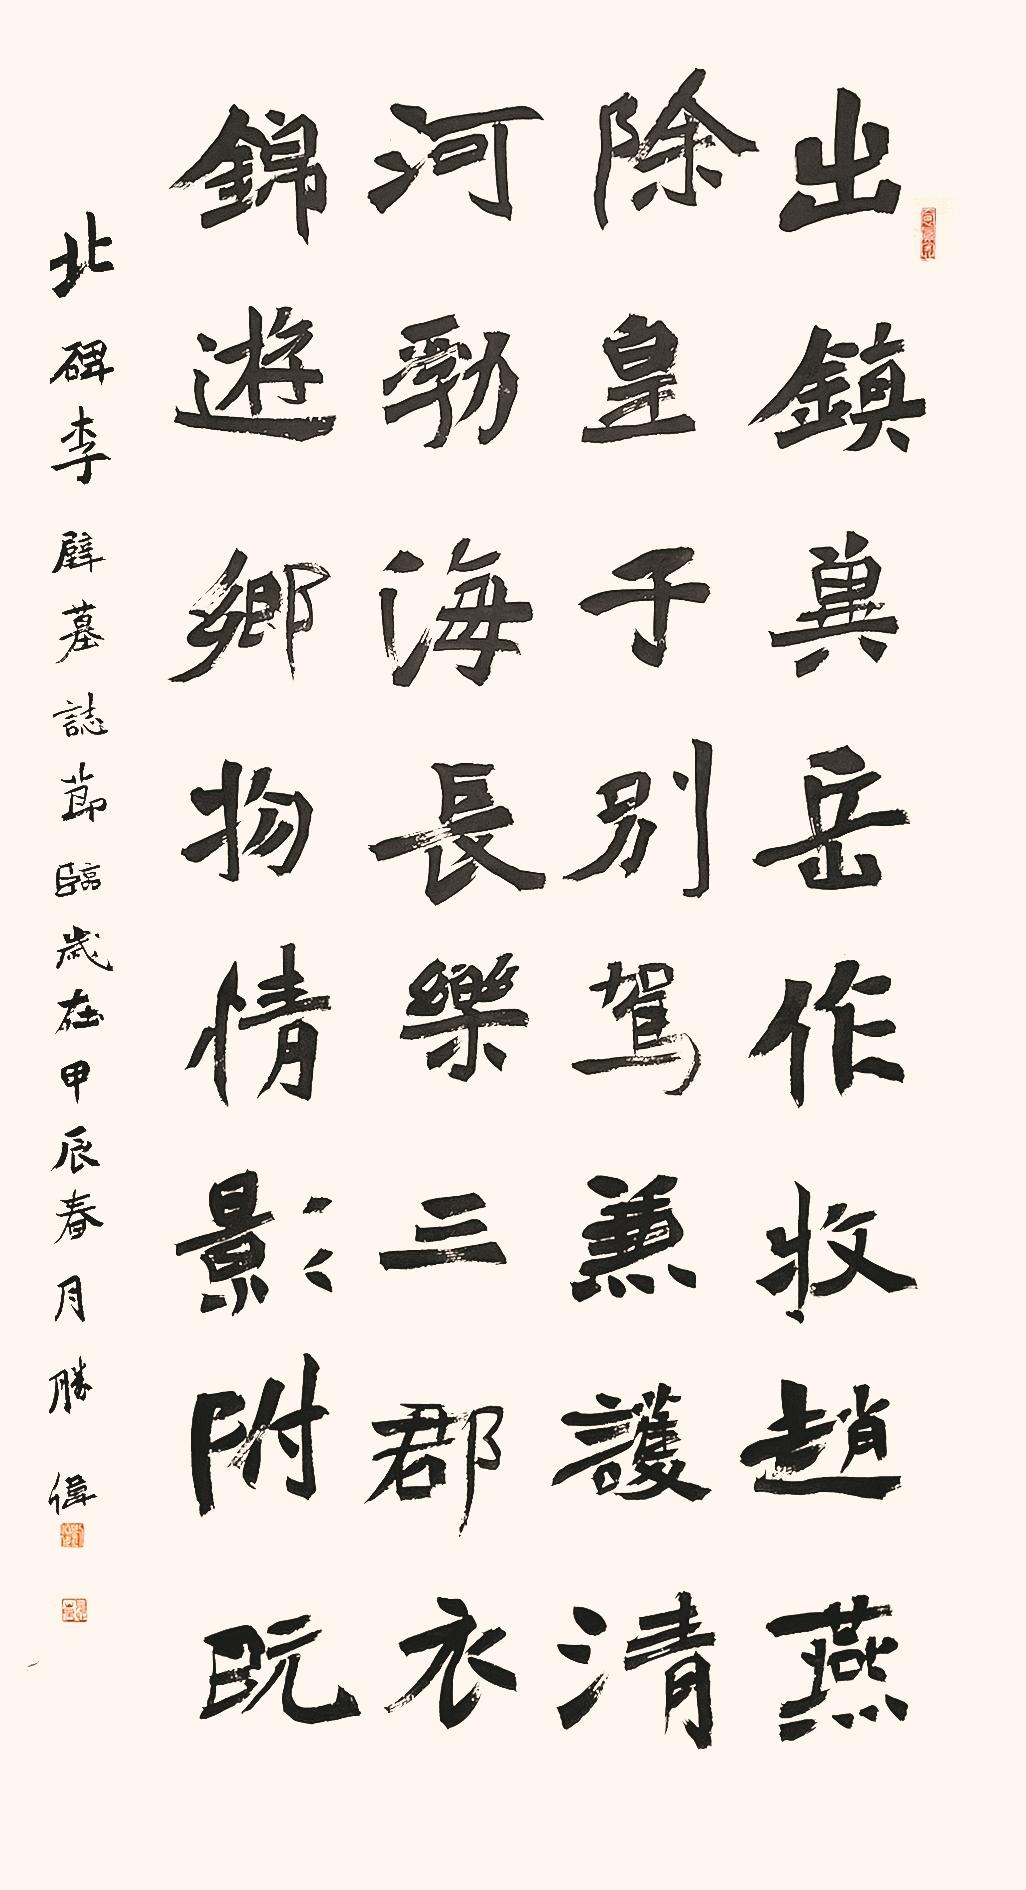 出鎮冀岳作牧趙燕
除皇子別駕兼護清
河勃海長樂三郡衣
錦遊鄉物情影附既
北碑李璧墓誌節臨歲在甲辰春月勝偉